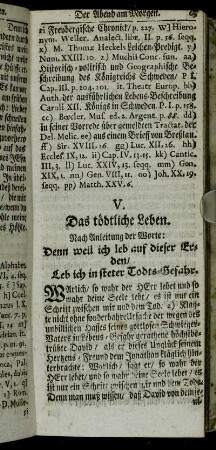 Der Abend am Morgen. 65
z) Freybergische Chronick/ p. 227. W) Hiero-
nym. Weller. Analect. libr. II. p. 16. seqq.
x) M. Thomæ Heckels Leichen-Predigt. y)
Num. XXIII. 10. z) Muchii Conc. fun. aa)
Historisch-politisch und Geographische Be-
schreibung des Königreichs Schweden/ P. I.
Cap. III. p. 203. 101. it. Theatr. Europ. bb)
Auth. der ausführlichen Lebens-Beschreibung
Caroli XII. Königs in Schweden. P. I. p. 158.
cc) Bœcler. Mus. ed. 2. Argent. p. dd)
In seiner Vorrede über gemeldten Tractat. der
Del. Melic. ee) aus einem Brieff von Breßlau.
ff) Sir. XVIII. 16. gg) Luc. XII. 16. hh)
Eccles. IX. 12. ii) Cap. IV, 13. 16. kk) Cantic.
III, 3. ll) Luc. XXIV, 13. seqq. mm) Gen.
XIX, 1. nn) Gen. VIII. 11. oo) Joh. XX, 19.
seqq. pp) Matth. XXV. 6.
V.
Das tödtliche Leben.
Nach Anleitung der Worte:
Denn weil ich leb auf dieser Er-
den/
Leb ich in steter Todts-Gefahr.
Warlich/ so wahr der HErr lebet und so
wahr deine Seele lebt/ es ist nur ein
Schritt zwischen mir und dem Tod.
te nicht ohne sonderbahre Ursache der wegen des
unbillichen Hasses seines gottlosen Schwieger-
Vaters in Lebens-Gefahr gerathene höchstbe-
trübte David/ als er dieses Unglück seinem
Hertzens-Freund dem Jonathan kläglich hin-
terbrachte: Warlich/ sagt er/ so wahr der
HErr lebet/ und so wahr deine Seele lebet/ es
ist nur ein Schritt zwischen mir und dem Tode.
Denn man muß wissen/ daß David von dem